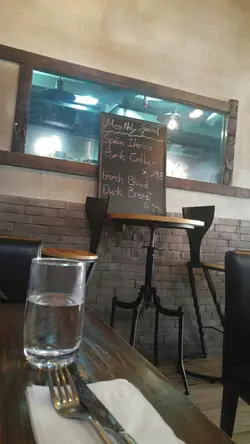 Monthly Special
Spain Iberico
Pork Collar
French Bland
Duck Breast